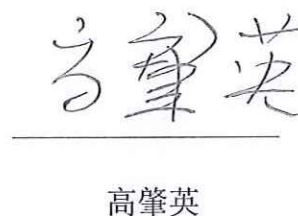 高肇英
高肇英